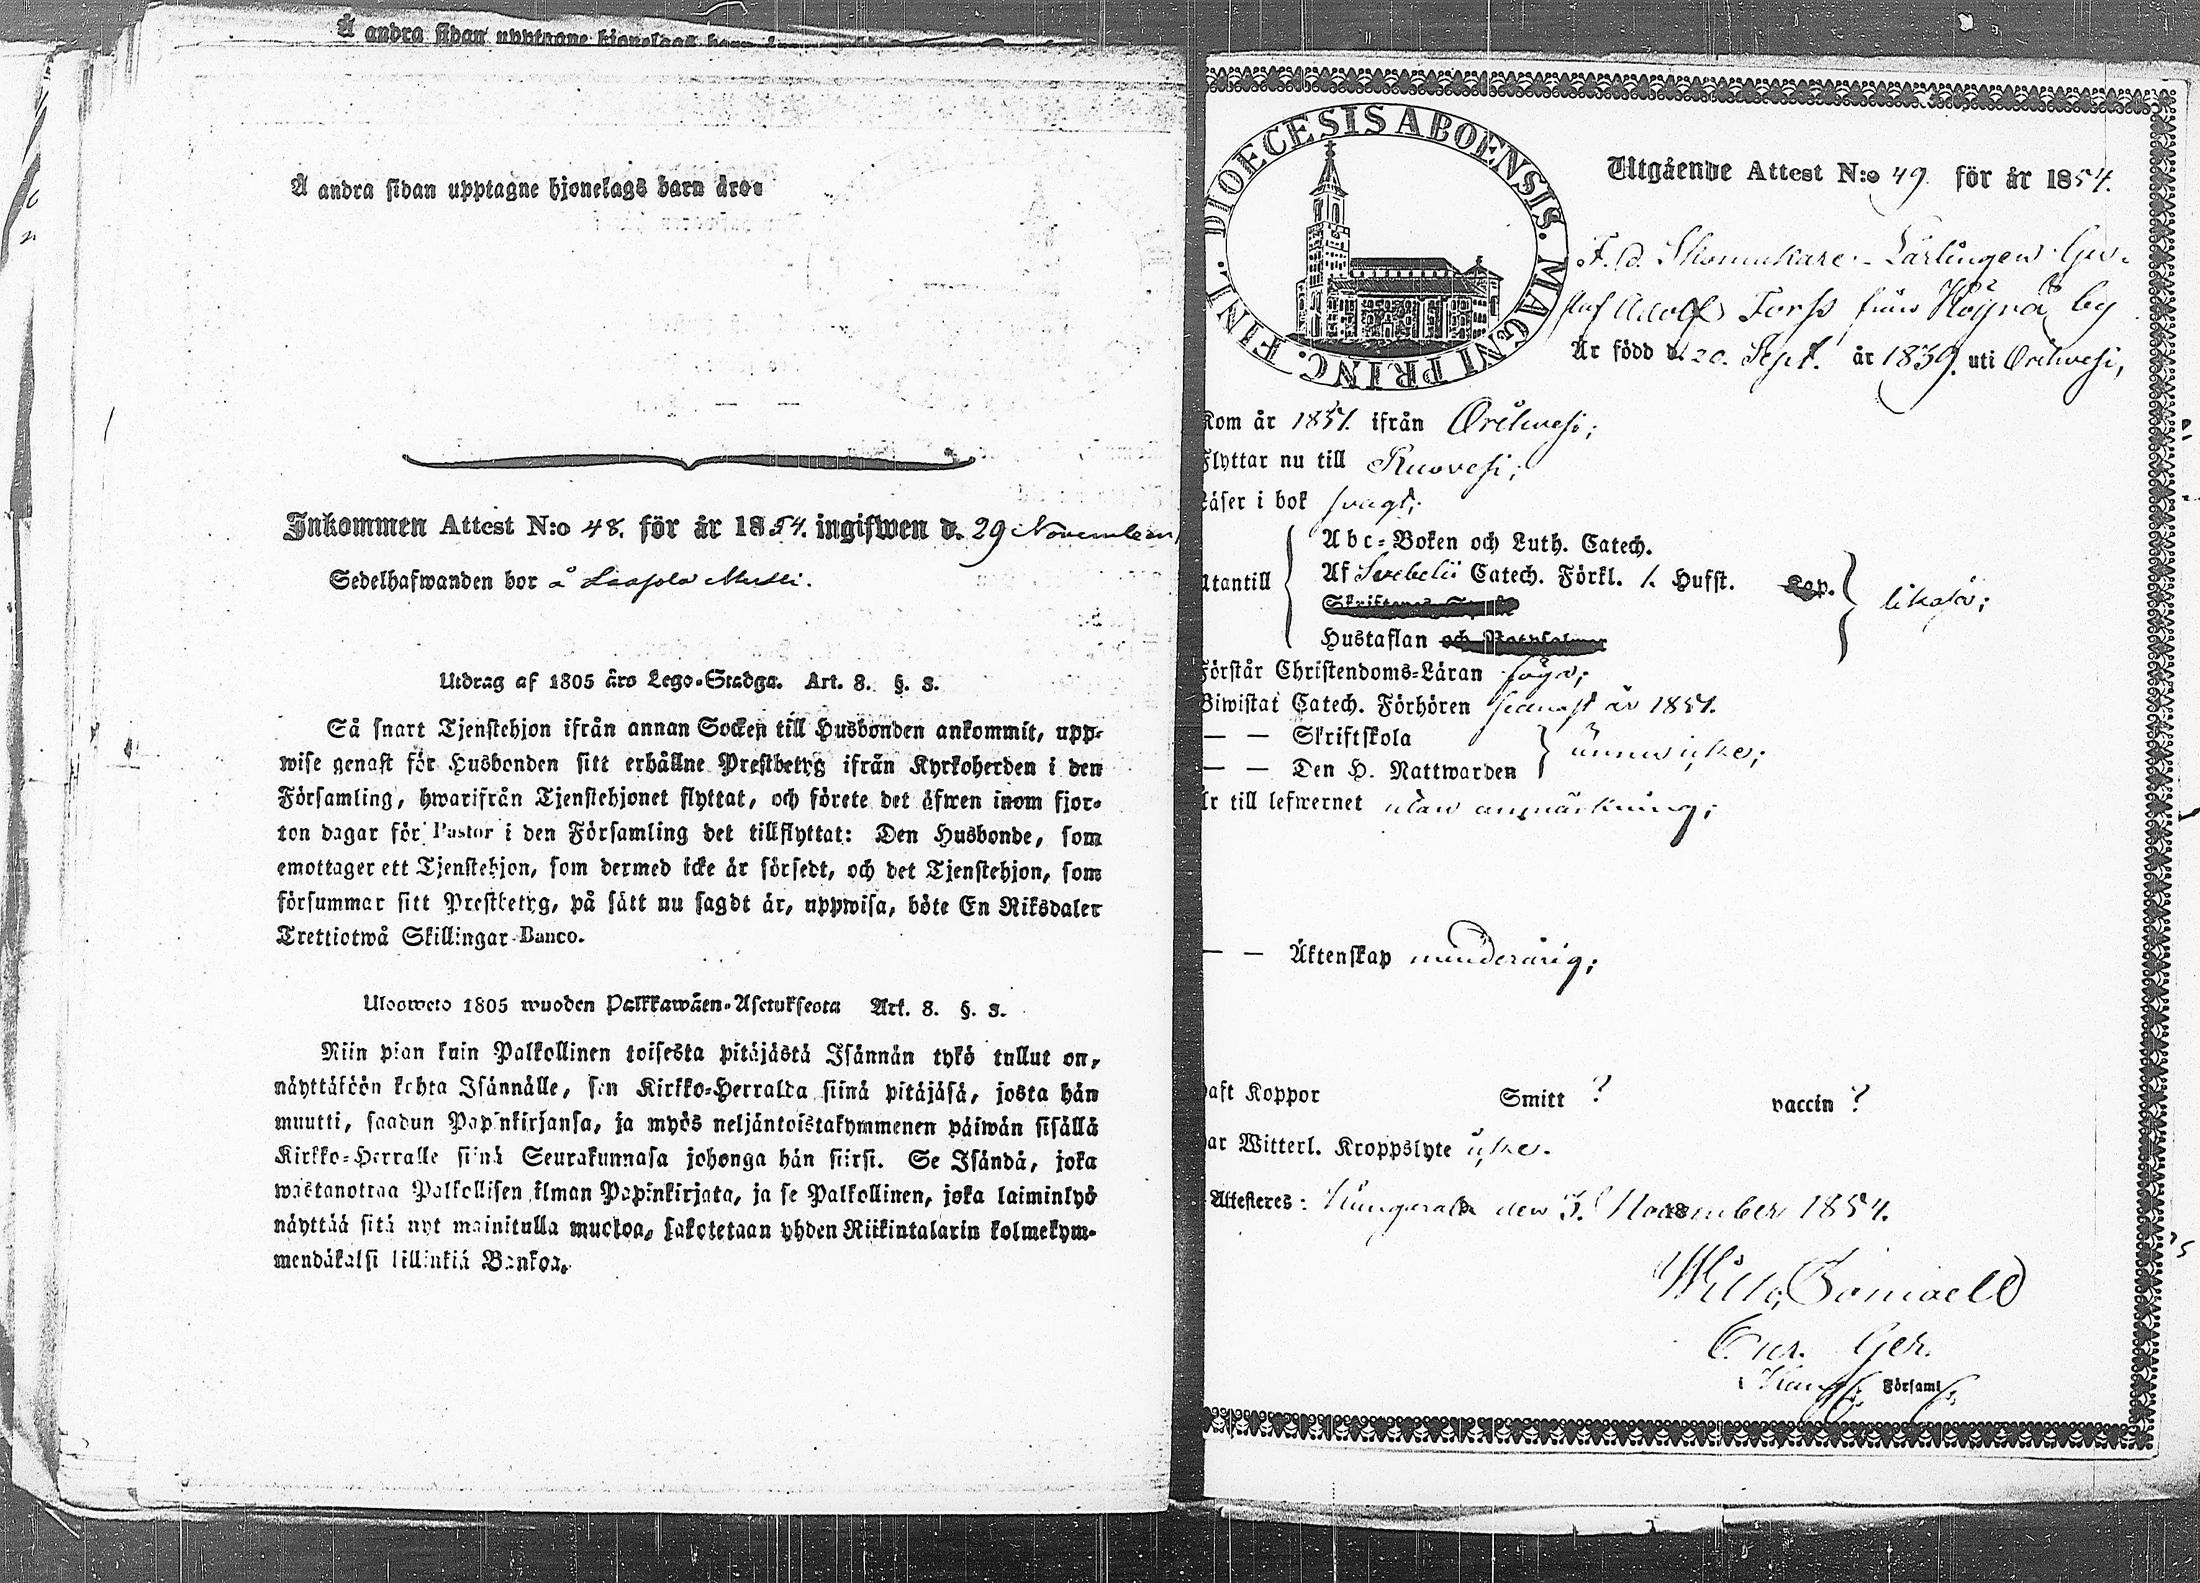 Å andra sidan upptagne hjonelags barn äro:
Å andra sidan upptagne hjonelags barn äro:
Inkommen Attest N:o 48. för år 1854. ingifwen d. 29 November
Sedelhafwanden bor å
Utdrag af 1805 års Lego-Stadga. Art. 8. §. 3.
Så snart Tjenstehjon ifrån annan Socken till Husbonden ankommit, upp-
wise genast för Husbonden sitt erhållne Prestbetyg ifrån Kyrkoherden i den
Församling, hwarifrån Tjenstehjonet flyttat, och förete det äfwen inom fjor-
ton dagar för Pastor i den Församling det tillflyttat: Den Husbonde, som
emottager ett Tjenstehjon, som dermed icke är försedt, och det Tjenstehjon, som
försummar sitt Prestbetyg, på sätt nu sagdt är, uppwisa, böte En Riksdaler
Trettiotwå Skillingar Banco.
Ulosweto 1805 wuoden Palkkawäen-Asetuksesta Art. 8. §. 3.
Niin pian kuin Palkollinen toisesta pitäjästä Isännän tykö tullut on,
näyttäköön kohta Isännälle, sen Kirkko-Herralda siinä pitäjäsä, josta hän
muutti, saadun Papinkirjansa, ja myös neljäntoistakymmenen päiwän sisällä
Kirkko-Herralle siinä Seurakunnasa johonga hän siirsi. Se Isändä, joka
wastanottaa Palkollisen ilman Papinkirjata, ja se Palkollinen, joka laiminlyö
näyttää sitä nyt mainitulla muotoa, sakotetaan yhden Riikintalarin kolmekym-
mendäkaksi killinkiä Bankoa.
DIOECESIS ABOENSIS. MAGNI PRINC. FINL.
Utgående Attest N:o 49. för år 1854.
F. d. Skomakare-Lärlingen Gu-
staf Adolf Forss från Höyrä by
Är född d. 20. Sept. år 1839. uti Orihvesi,
Kom år 1851. ifrån Orihvesi;
Flyttar nu till Ruovesi;
Läser i bok svagt;
Abc-Boken och Luth. Catech.
Utantill Af Svebelii Catech. Förkl. 1. Hufst. Kap. likaså;
Hustaflan och Botpsalmer
Förstår Christendoms-Läran föga;
Biwistat Catech. Förhören senast år 1851.
— — Skriftskola
— — Den H. Nattwarden ännu icke;
Är till lefwernet utan anmärkning;
— — Äktenskap minderårig;
haft Koppor Smitt ? vaccin ?
har Witterl. Kroppslyte icke.
Attesteres: Kangasala den 3. November 1854.
Cur. Ger.
Församl